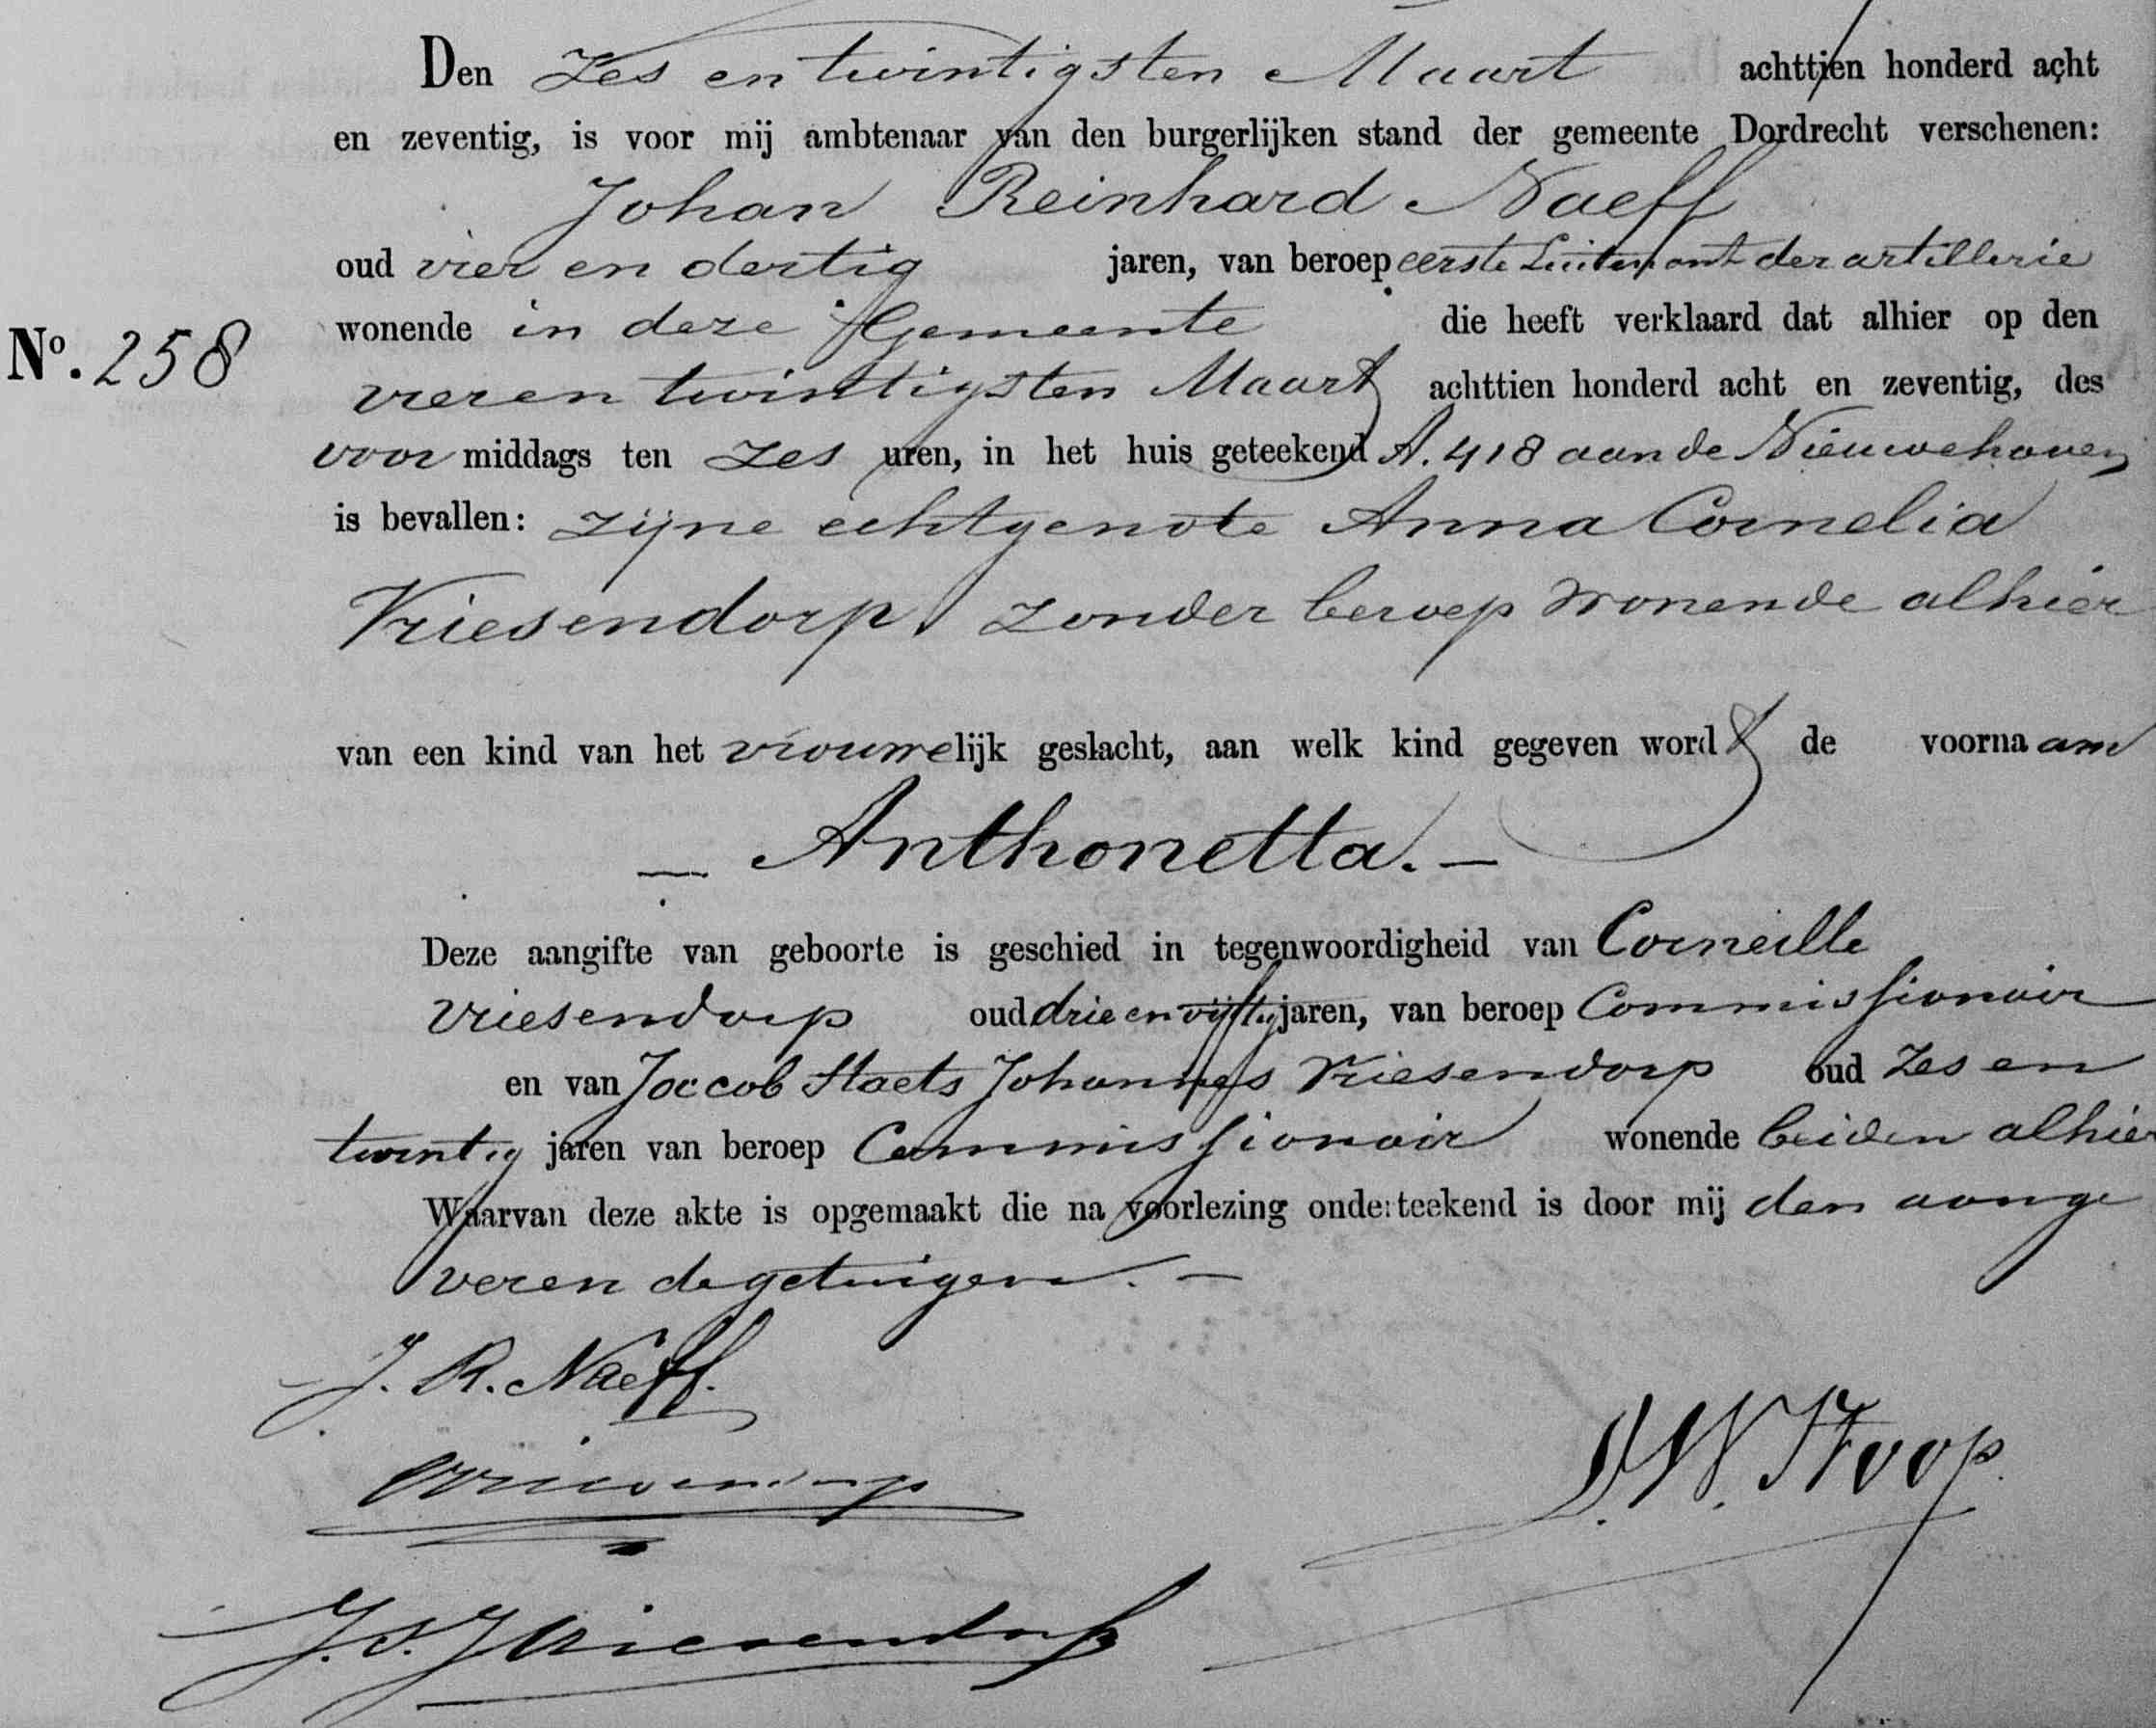 Den Zes en twintigsten Maart achttien honderd acht
en zeventig, is voor mij ambtenaar van den burgerlijken stand der gemeente Dordrecht verschenen:
Johan Reinhard Naeff
oud vier en dertig jaren, van beroep eerste Luitenant der artillerie
wonende in deze Gemeente die heeft verklaard dat alhier op den
No. 258
vier en twintigsten Maart achttien honderd acht en zeventig, des
voor middags ten zes uren, in het huis geteekend A. 418 aan de Nieuwehaven
is bevallen: zijne echtgenote Anna Cornelia
Vriesendorp, zonder beroep wonende alhier
van een kind van het vrouwelijk geslacht, aan welk kind gegeven wordt de voornaam
— Anthonetta. —
Deze aangifte van geboorte is geschied in tegenwoordigheid van Corneille
Vriesendorp oud drie en vijftig jaren, van beroep Commissionair
en van Jaccob Staets Johannes Vriesendorp oud Zes en
twintig jaren van beroep Commissionair wonende beiden alhier
Waarvan deze akte is opgemaakt die na voorlezing onderteekend is door mij den aange
veren de getuigen. —
J. R. Naeff.
CVriesendorp
D.W. Stoop.
J.S.J Vriesendorp